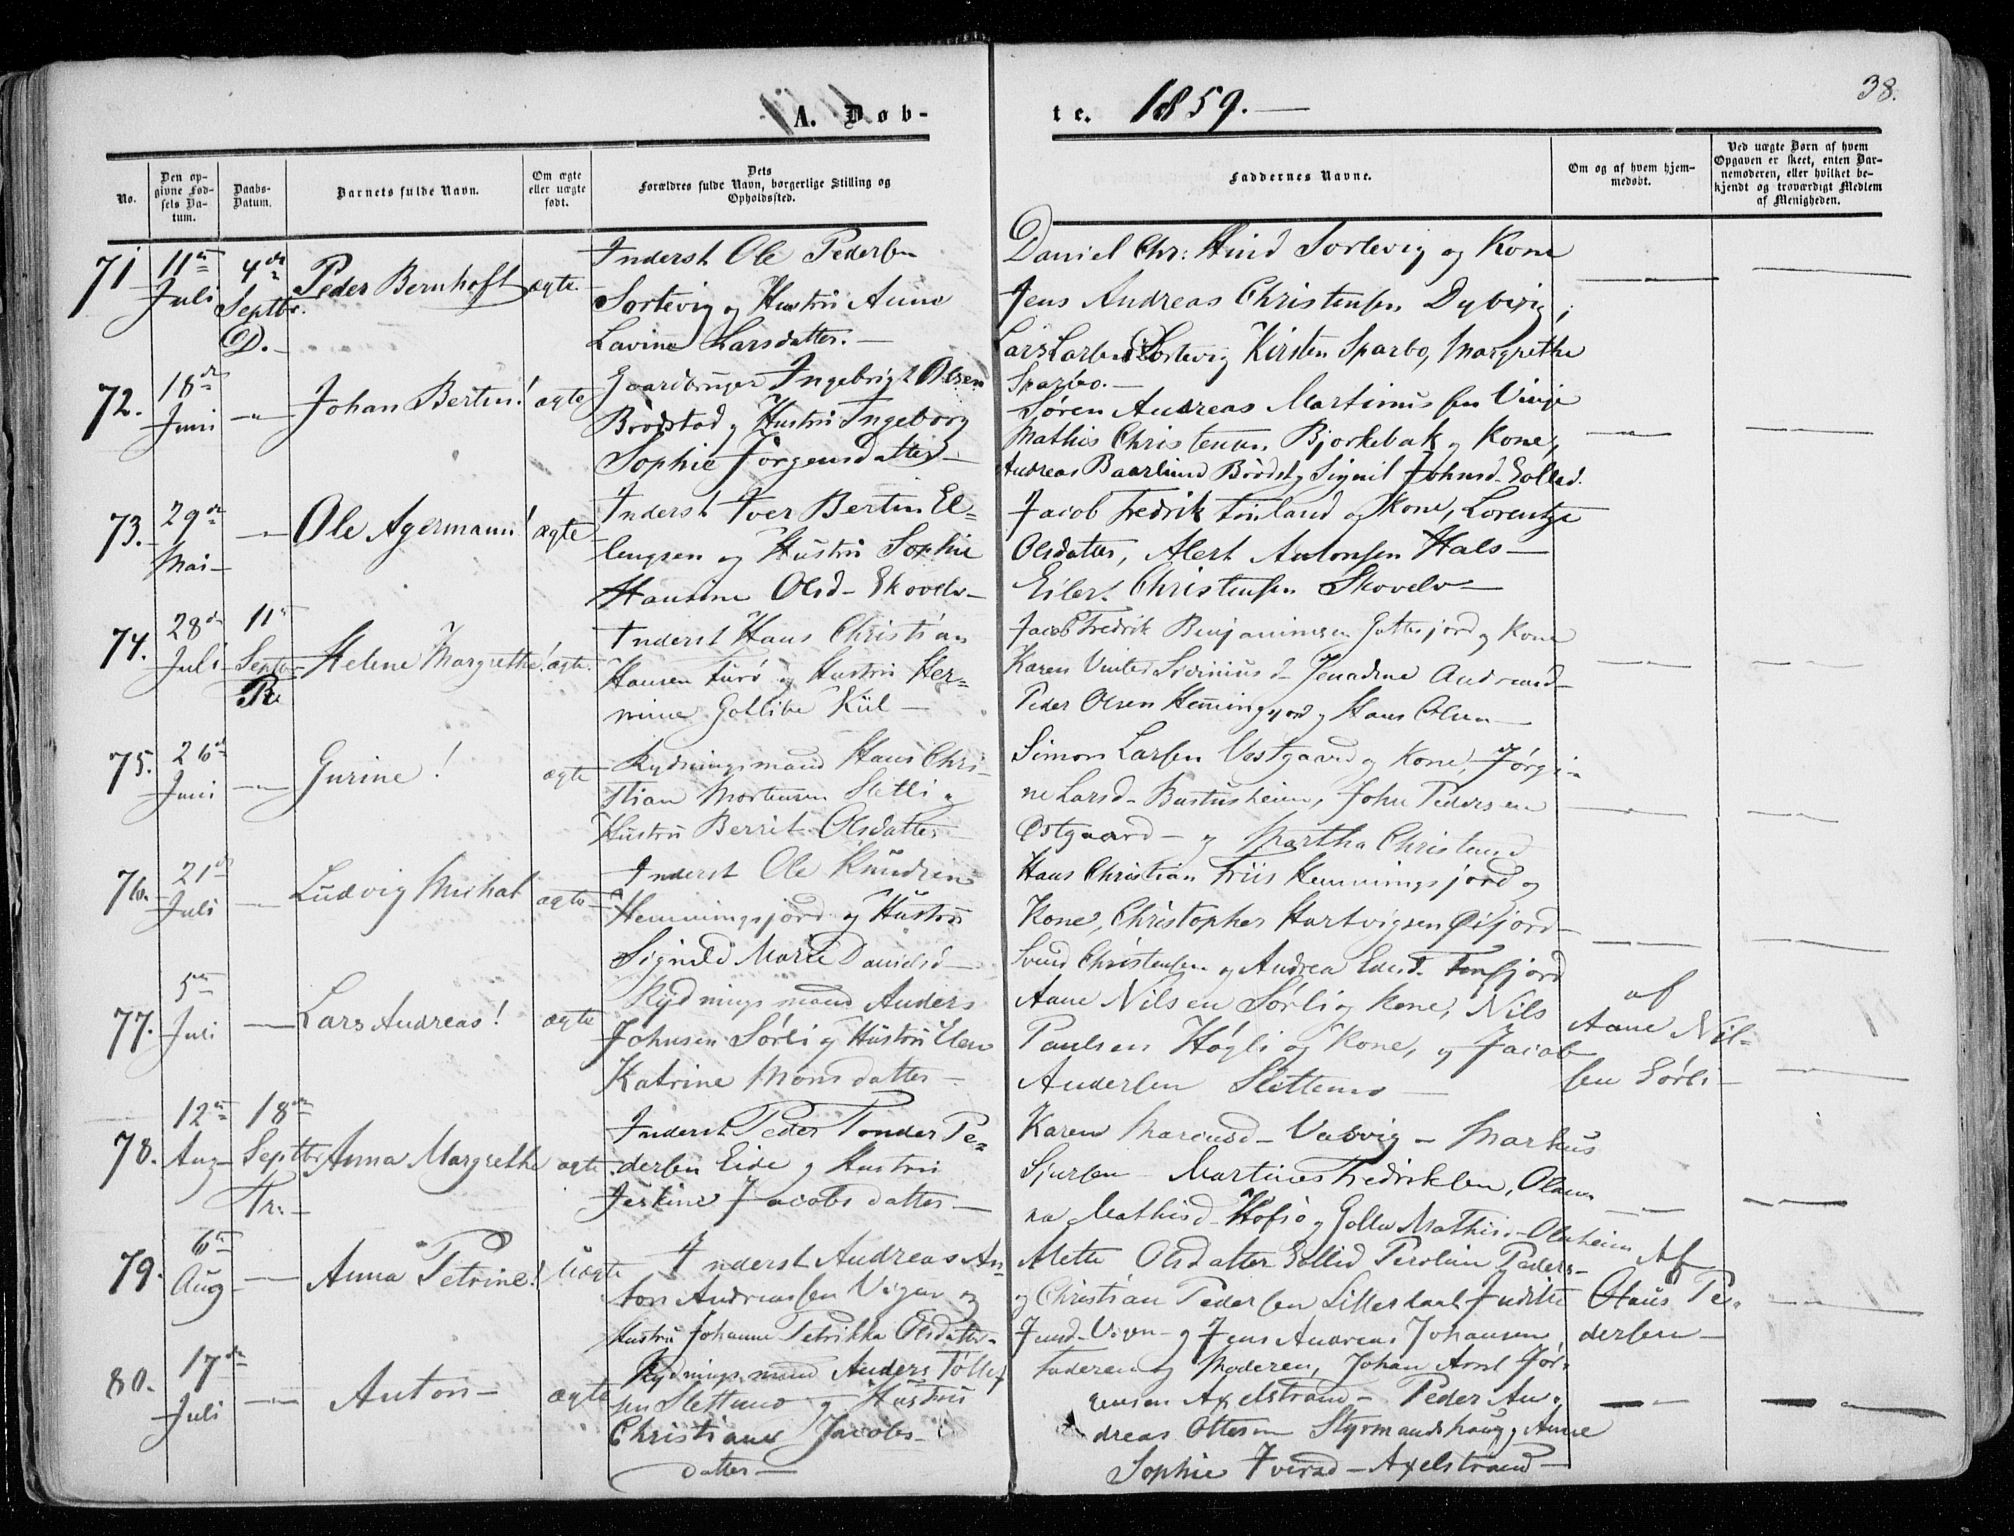 38.
A. Døb-
te. 1859.
No.
Den opgivne Fødsels Datum.
Daabs-Datum.
Barnets fulde Navn.
Om ægte eller uægte født.
Dets Forældres fulde Navn, borgerlige Stilling og Opholdssted.
Faddernes Navne.
Om og af hvem hjemmedøbt.
Ved uægte Børn af hvem Opgaven er skeet, enten Barnemoderen, eller hvilket bekjendt og troværdigt Medlem af Menigheden.
71
11te Juli
4de Septbr.
D.
Peder Bernhoft
ægte
Inderst Ole Pedersen
Sortevig og Hustru Anne
Lavine Larsdatter.
Daniel Chr: Hind Sortevig og Kone
Jens Andreas Christensen Dybvig,
Lars Larsen Sortevig Kirsten Sparbo, Margrethe
Sparbo.
72.
18de Juni
Johan Bertin!
ægte
Gaardbruger Ingebrigt Olsen
Brødstad og Hustru Ingeborg
Sophie Jørgensdatter
Søren Andreas Martinussen Vinje
Mathis Christensen Bjorkebak og Kone,
Andreas Baarlund Brødst. og Signil Johnsd. Sollid.
73.
29de Mai
Ole Agermann!
ægte
Inderst Iver Bertin El-
lengsen og Hustru Sophie
Hansine Olsd Skovelv
Jacob Fredrik Finland og Kone, Lorentze
Olsdatter, Alert Antonsen Hals
Eilert Christensen Skovelv
74.
28de Juli
11te Septbr
Helene Margrethe!
ægte.
Inderst Hans Christian
Hansen Furø og Hustru Her-
mine Gotlibe Kiil
Jacob Fredrik Benjaminsen Gottesjord og Kone
Karen Vinter Sivriniusd Jenadine Andreasd
Peder Olsen Hemingsjord og Hans Olsen
75.
26de Juni
Gurine!
ægte
Rydningsmand Hans Chri-
stian Mortensen Sletli og
Hustru Berrit Olsdatter
Simon Larsen Vestgaard og Kone, Jørgi-
ne Larsd Bustusheim, John Pedersen
Østgaard og Martha Christensd
76.
21de Juli
Ludvig Michal
ægte
Inderst Ole Knudsen
Hemmingsjord og Hustru
Signild Marie Danielsd
Hans Christian Friis Hemmingsjord og
Kone, Christopher Hartvigsen Øifjord
Svend Christensen og Andrea Enesd. Finfjord
77.
5te Juli
Lars Andreas!
ægte
Rydningsmand Anders
Johnsen Sørli og Hustru Elen
Katrine Monsdatter
Aane Nilsen Sørli og Kone, Nils
Paulsen Høgli og Kone, og Jacob
Andersen Slettemo
af
Aane Nil-
sen Sørli
78.
12te Aug
18de Septbr
Tr.
Anna Margrethe
ægte
Inderst Peder Tonder Pe-
dersen Eide og Hustru
Jerkine Jacobsdatter
Karen Marcusd Vasvig Markus
Sjursen Martines Fredriksen, Olau-
na Mathisd Hofsø og Golla Mathisd Olnheim
79.
6te Aug
Anna Petrine!
uægte
Inderst Andreas An-
ton Andreassen Vigen og
Hustru Johanne Petrikka Olsdatter
Mette Olsdatter Sollid Peroline Peders-
og Christian Pedersen Lillerstaat Judithe
Jensd Vigen og Jens Andreas Johansen
Af
Olaus Pe-
dersen
80.
17de Juli
Anton
ægte
Rydningsmand Anders Tollef
sen Slettmo og Hustru
Christiane Jacobs-
datter
Faderen og Moderen, Johan Arnt Jør-
gensen Axelstrand Peder An-
dreas Ottesen Styrmandshaug, Anne
Sophie Iversd Axelstrand